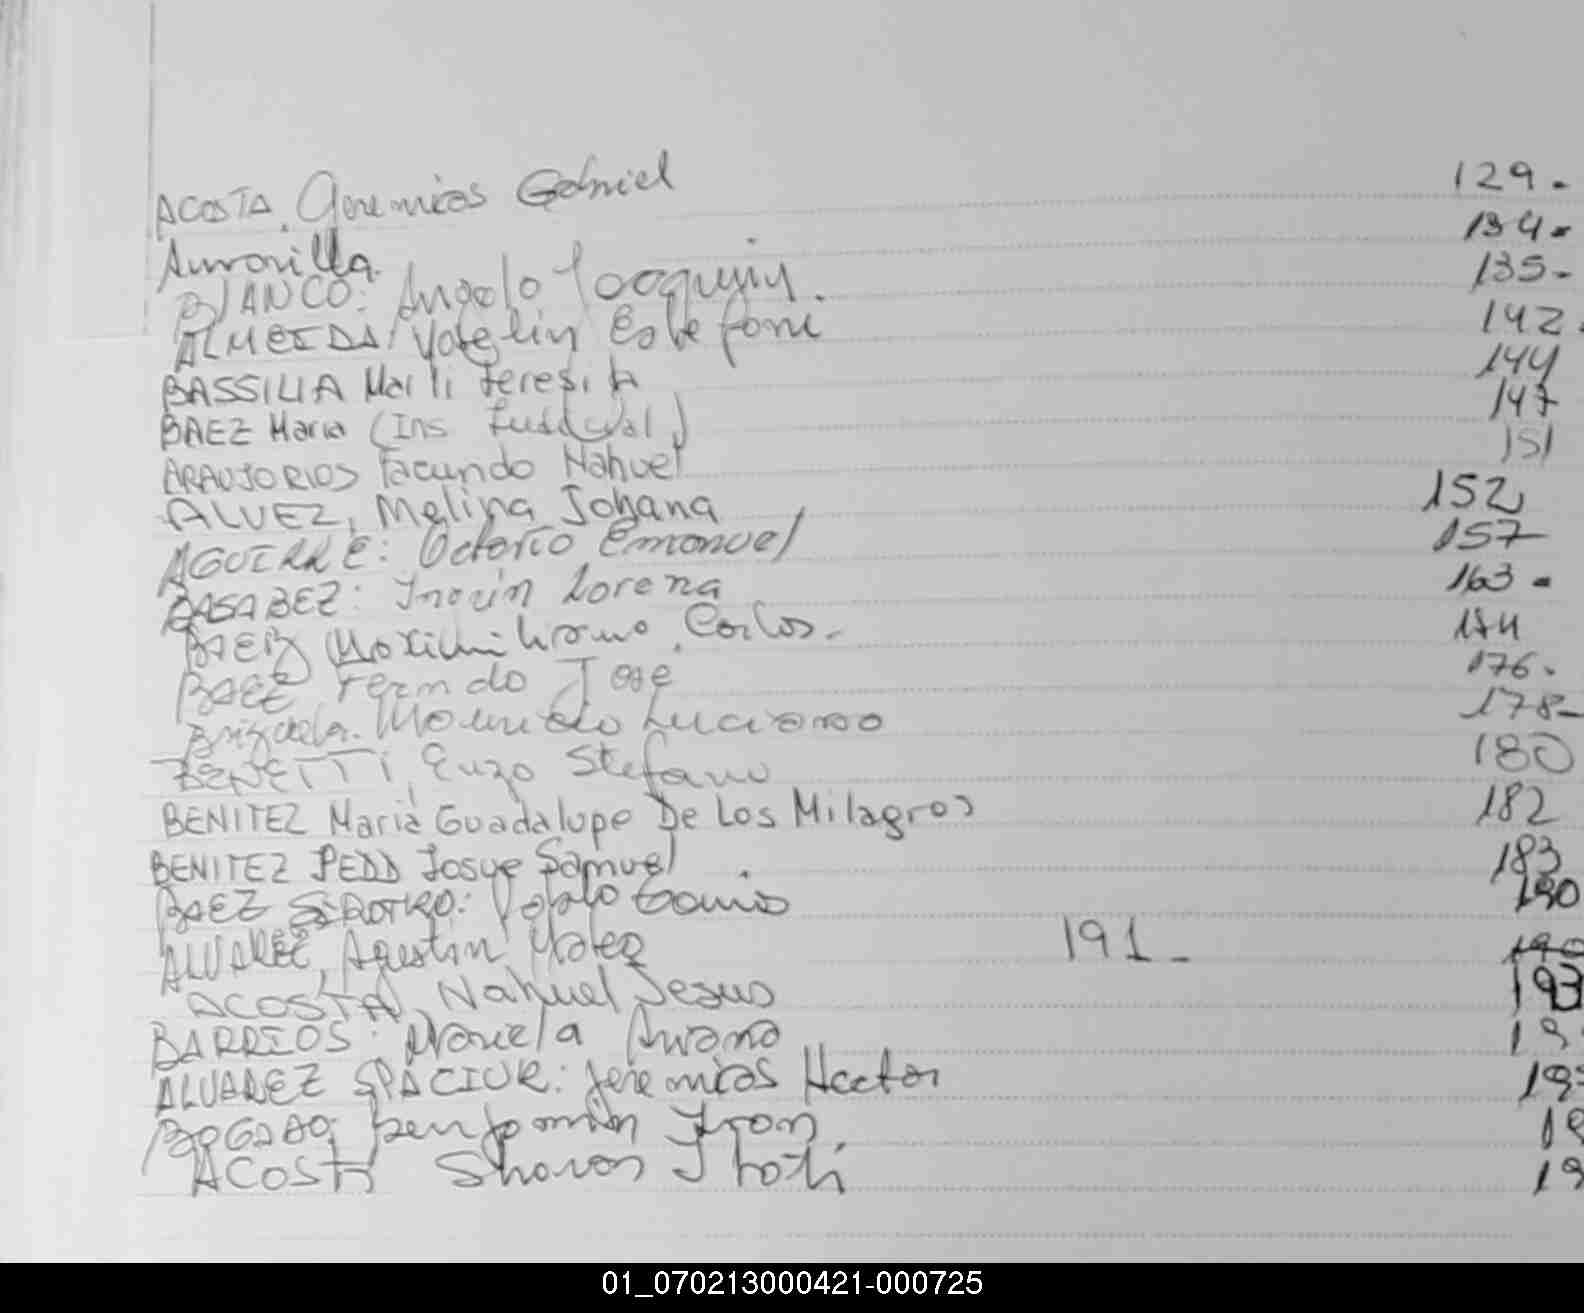 ACOSTA, Geremias Gabriel 129.
Amarilla. 134.
BIANCO: Angelo Joaquin. 135.
ALMEIDA, Estefani 142.
BASSILIA Marli Teresita 144
BAEZ Maria (Ins Judicial) 147
ARAUJO RIOS Facundo Nahuel 151
ALVEZ, Melina Johana 152
AGUIRRE: Octavio Emanuel 157
BASABEZ: Lorena 163.
BAEZ Maximiliano Carlos. 174
BAEZ Fernando Jose 176.
Brizuela. Mauricio Luciano 178-
BENETTI, Enzo Stefano 180
BENITEZ Maria Guadalupe De Los Milagros 182
BENITEZ PEDD Josue Samuel 183
BAEZ SIROTKO: Pablo 190
ALVAREZ, Agustin Mateo 191- 190
ACOSTA Nahuel Jesus 193
BARRIOS: Mariela 19
ALVAREZ SPACIUK: Jeremias Hector 19
BOGADO: Benjamin Ivan. 19
ACOSTA Sharon 19
01_070213000421-000725